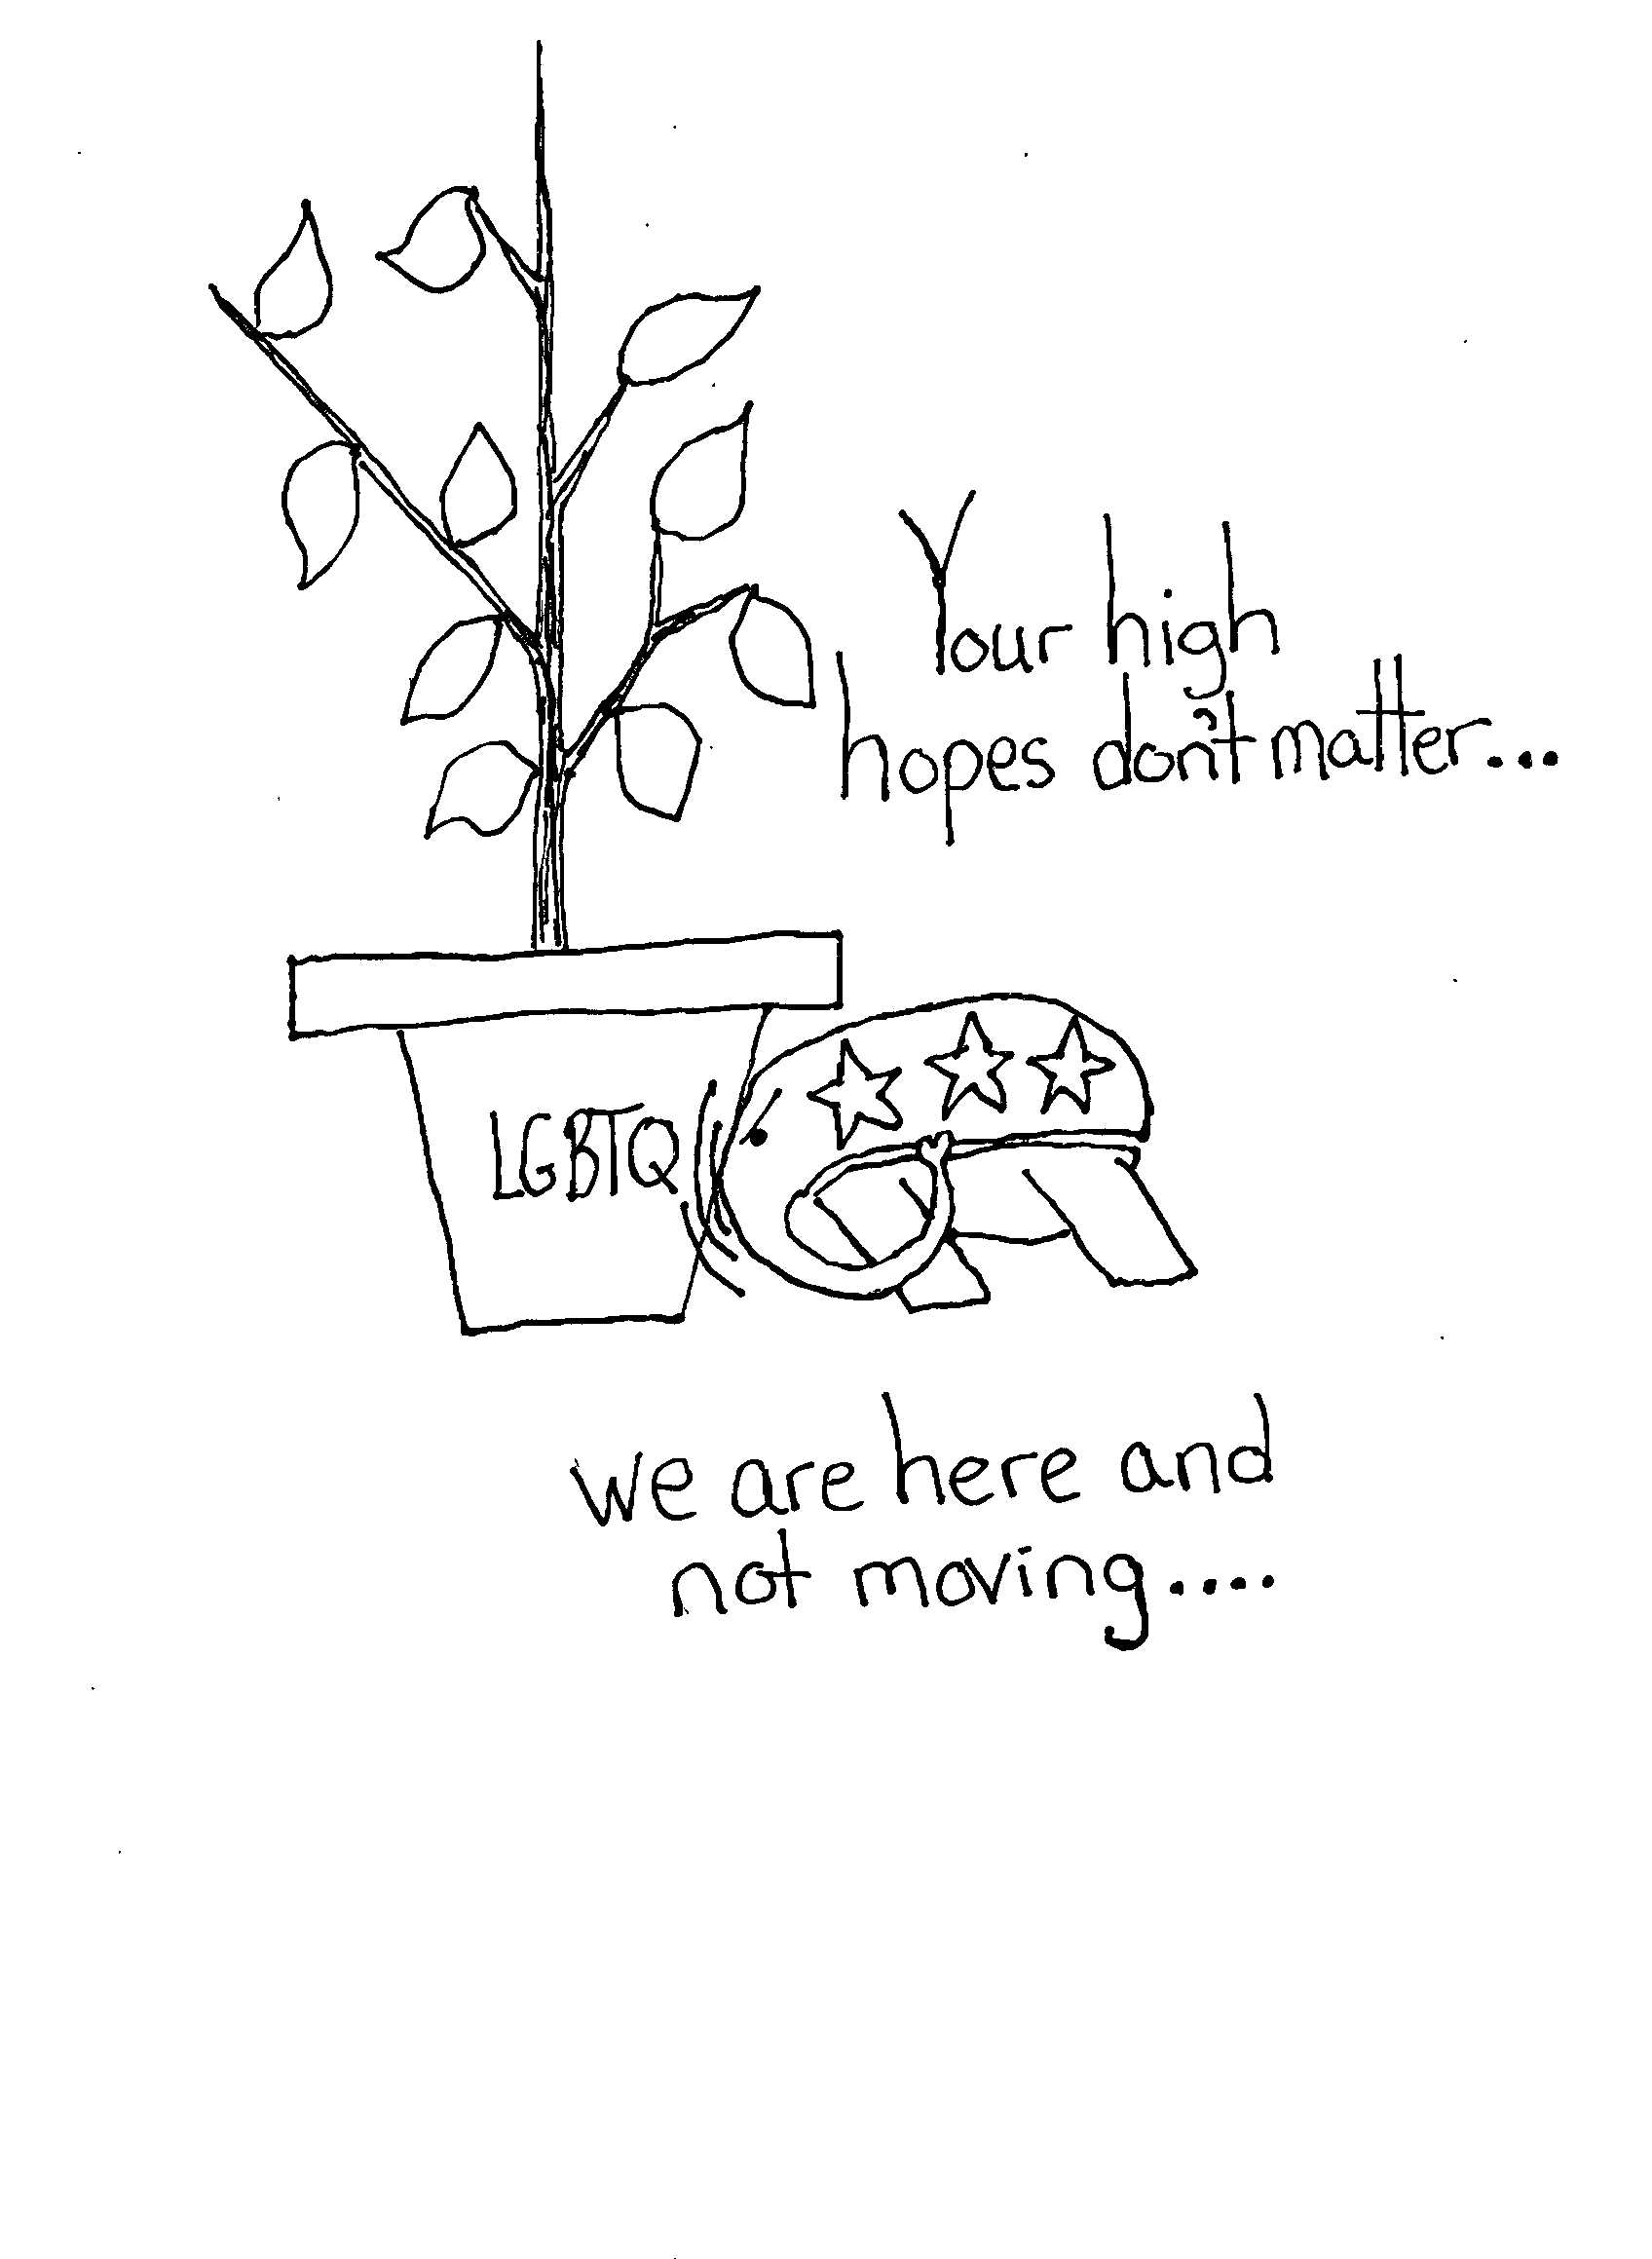 Your high
hopes don't matter...
LGBTQ
we are here and
not moving....